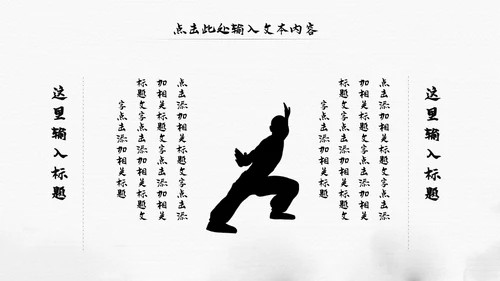 点击此处输入文本内容
这里输入标题
点击添加相关标题文字点击添
加相关标题文字点击添加相关
标题文字点击添加相关标题文
字点击添加相关标题
这里输入标题
点击添加相关标题文字点击添
加相关标题文字点击添加相关
标题文字点击添加相关标题文
字点击添加相关标题